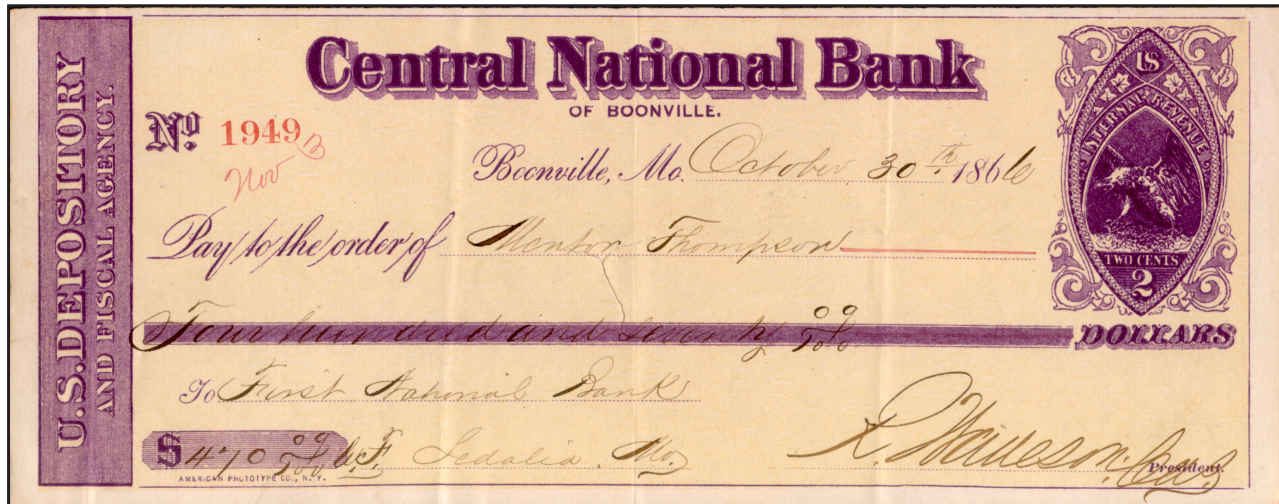 U.S. DEPOSITORY
AND FISCAL AGENCY.
Central National Bank
OF BOONVILLE.
No. 1949
Nov
Boonville, Mo. October 30th 1866
Pay to the order of Mentor Thompson
Four hundred and seventy 00/100 DOLLARS
To First National Bank
$ 470 00/100 Sedalia, Mo.
President.
AMERICAN PHOTOTYPE CO., N.Y.
US
INTERNAL REVENUE
TWO CENTS
2